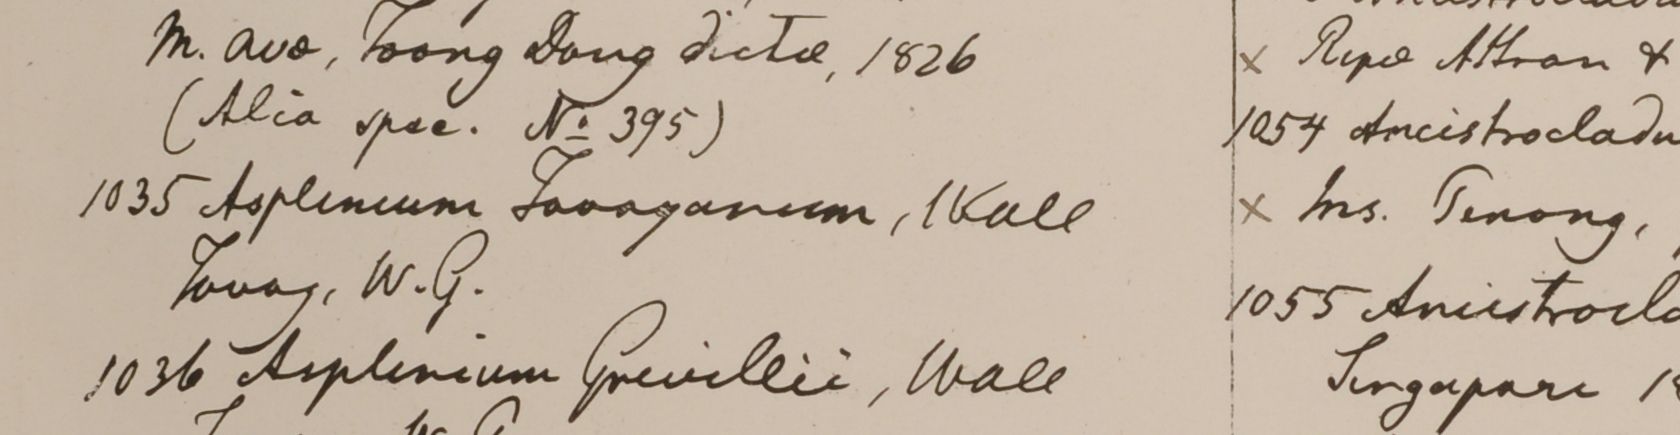 M. Ava, Toong Dong dicta, 1826
(Alia spec. No. 395)
1035 Asplenium Tavoyanum, Wall
Tavoy, W.G.
1036 Asplenium Grevillii, Wall
W. G
x Ripæ Attran &
1054 Ancistrocladu
x Ins. Penong,
1055 Ancistrocla
Singapore 18